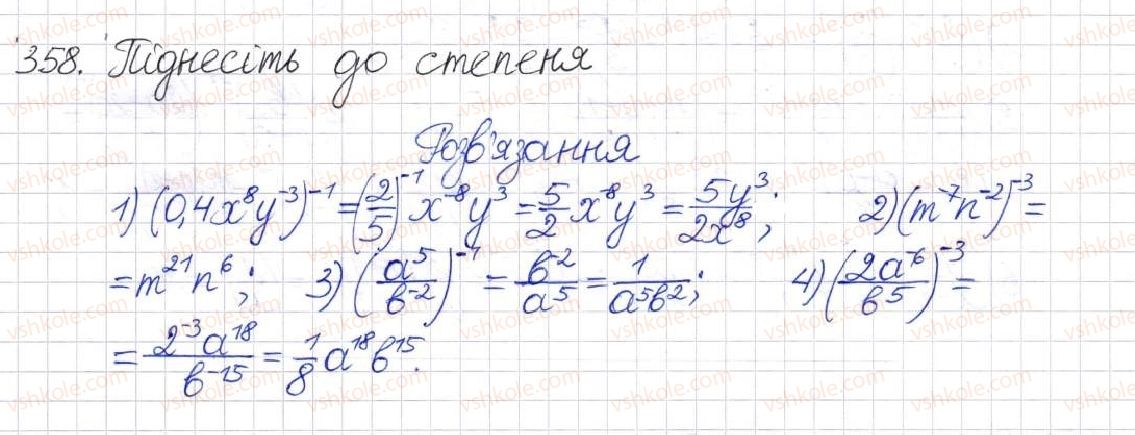 358. Піднесіть до степеня
Розв'язання
1) (0,4x⁸y⁻³)⁻¹ = (2/5)⁻¹ x⁻⁸y³ = 5/2 x⁻⁸y³ = 5y³/2x⁸; 2) (m⁻⁷n⁻²)⁻³ =
= m²¹n⁶; 3) (a⁵/b⁻²)⁻¹ = b⁻²/a⁵ = 1/a⁵b²; 4) (2a⁻⁶/b⁵)⁻³ =
= 2⁻³a¹⁸/b⁻¹⁵ = 1/8 a¹⁸b¹⁵.
vshkole.com